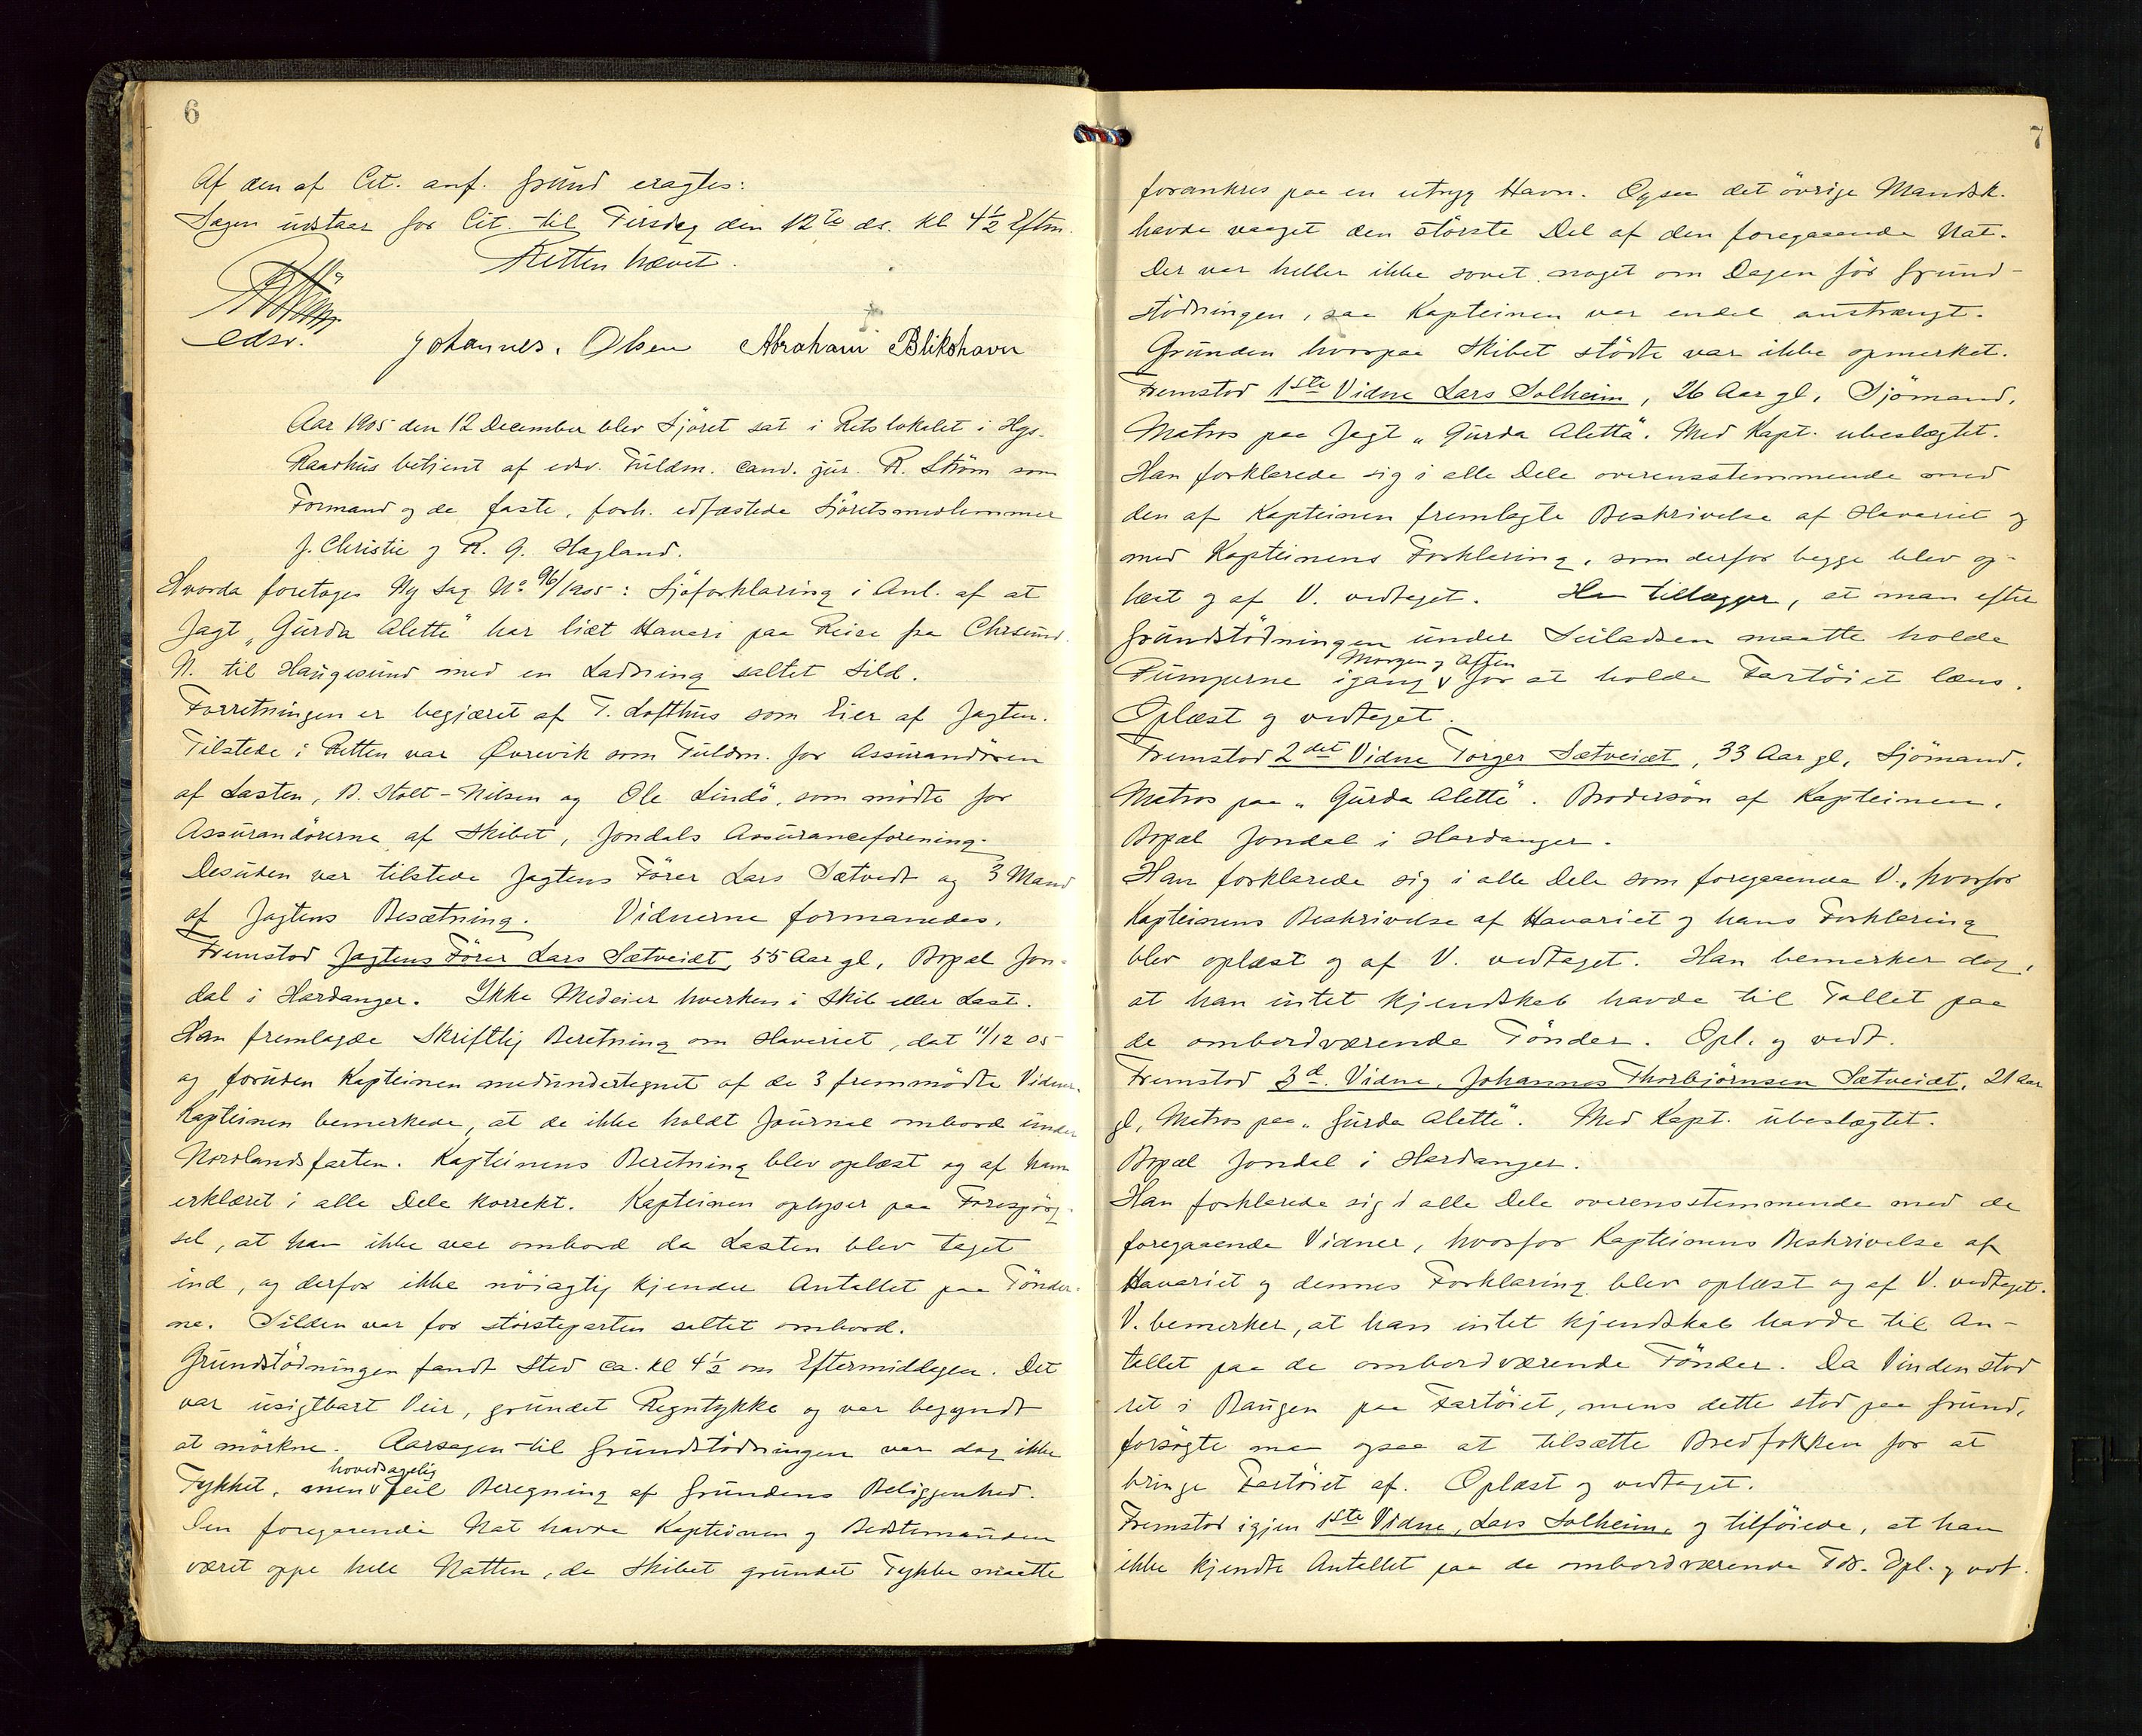 6
Af den af Cit. anf. Grund eragtes:
Sagen udstaar for Cit. til Tirsdag den 12te ds. Kl 4½ Eftm.
Retten hævet.
RStröm
edsv.
Johannes. Olsen Abraham Blikshavn
Aar 1905 den 12 December blev Sjöret sat i Retslokalet i Hgs.
Raadhus betjent af edsv. Fuldm. cand. jur. R. Ström som
Formand og de faste, forh. edfæstede Sjöretsmedlemmer
J. Christie og R. G. Hagland.
Hvorda foretoges Ny Sag No 96/1905: Sjöforklaring i Anl. af at
Jagt „Gurda Alette" har lidt Havari paa Reise fra Chrsund.
N. til Haugesund med en Ladning saltet Sild.
Forretningen er begjæret af T. Lofthus som Eier af Jagten.
Tilstede i Retten var Øvrevik som Fuldm. for Assurandören
af Lasten, B. Stolt-Nilsen og Ole Lindö, som mödte for
Assurandörerne af Skibet, Jondals Assuranceforening.
Desuden var tilstede Jagtens Förer Lars Sætvedt og 3 Mand
af Jagtens Besætning. Vidnerne formanedes.
Fremstod Jagtens Förer Lars Sætveidt, 55 Aar gl, Bopæl Jon-
dal i Hardanger. Ikke Medeier hverken i Skib eller Last.
Han fremlagde Skriftlig Beretning om Havariet, dat 11/12 05
og foruden Kapteinen medundertegnet af de 3 fremmödte Vidner.
Kapteinen bemerkede, at de ikke holdt Journal ombord under
Nordlandsfarten. Kapteinens Beretning blev oplæst og af ham
erklæret i alle Dele korrekt. Kapteinen oplyser paa Forespörg-
sel, at han ikke var ombord da Lasten blev taget
ind, og derfor ikke nöiagtig kjender Antallet paa Tönder-
ne. Silden var for störsteparten saltet ombord.
Grundstödningen fandt Sted ca. kl 4½ om Eftermiddagen. Det
var usigtbart Veir, grundet Regntykke og var begyndt
at mörkne. Aarsagen til Grundstödningen var dog ikke
Tykket, men hovedsagelig Feil Beregning af Grundens Beliggenhed.
Den foregaaende Nat havde Kapteinen og Bedstemanden
været oppe hele Natten, da Skibet grundet Tykke maatte
7
forankres paa en utryg Havn. Ogsaa det övrige Mandsk.
havde vaaget den störste Del af den foregaaende Nat.
Der var heller ikke sovet noget om Dagen för Grund-
stödningen, saa Kapteinen var endel anstrængt.
Grunden hvorpaa Skibet stödte var ikke opmerket.
Fremstod 1ste Vidne Lars Solheim, 26 Aar gl, Sjömand,
Matros paa Jagt „Gurda Aletta". Med Kapt. ubeslægtet.
Han forklarede sig i alle Dele overensstemmende med
den af Kapteinen fremlagte Beskrivelse af Havariet og
med Kapteinens Forklaring, som derfor begge blev op-
læst og af V. vedtaget. Han tillægger, at man efter
Grundstödningen under Seiladsen maatte holde
Pumperne igang Morgen og Aften for at holde Fartöiet læns.
Oplæst og vedtaget.
Fremstod 2det Vidne Torger Sætveidt, 33 Aar gl, Sjömand,
Matros paa „Gurda Alette". Brodersön af Kapteinen.
Bopæl Jondal i Hardanger.
Han forklarede sig i alle Dele som foregaaende V., hvorfor
Kapteinens Beskrivelse af Havariet og hans Forklaring
blev oplæst og af V. vedtaget. Han bemerker dog,
at han intet Kjendskab havde til Tallet paa
de ombordværende Tönder. Opl. og vedt.
Fremstod 3d. Vidne, Johannes Thorbjörnsen Sætveidt, 21 Aar
gl, Matros paa „Gurda Alette". Med Kapt. ubeslægtet.
Bopæl Jondal i Hardanger.
Han forklarede sig i alle Dele overensstemmende med de
foregaaende Vidner, hvorfor Kapteinens Beskrivelse af
Havariet og dennes Forklaring blev oplæst og af V. vedtaget.
V. bemerker, at han intet Kjendskab havde til An-
tallet paa de ombordværende Tönder. Da Vinden stod
ret i Baugen paa Fartöiet, mens dette stod paa Grund,
forsögte man ogsaa at tilsætte Bredfokken for at
bringe Fartöiet af. Oplæst og vedtaget.
Fremstod igjen 1ste Vidne, Lars Solheim, og tilföiede, at han
ikke kjendte Antallet paa de ombordværende Tdr. Opl. og vdt.